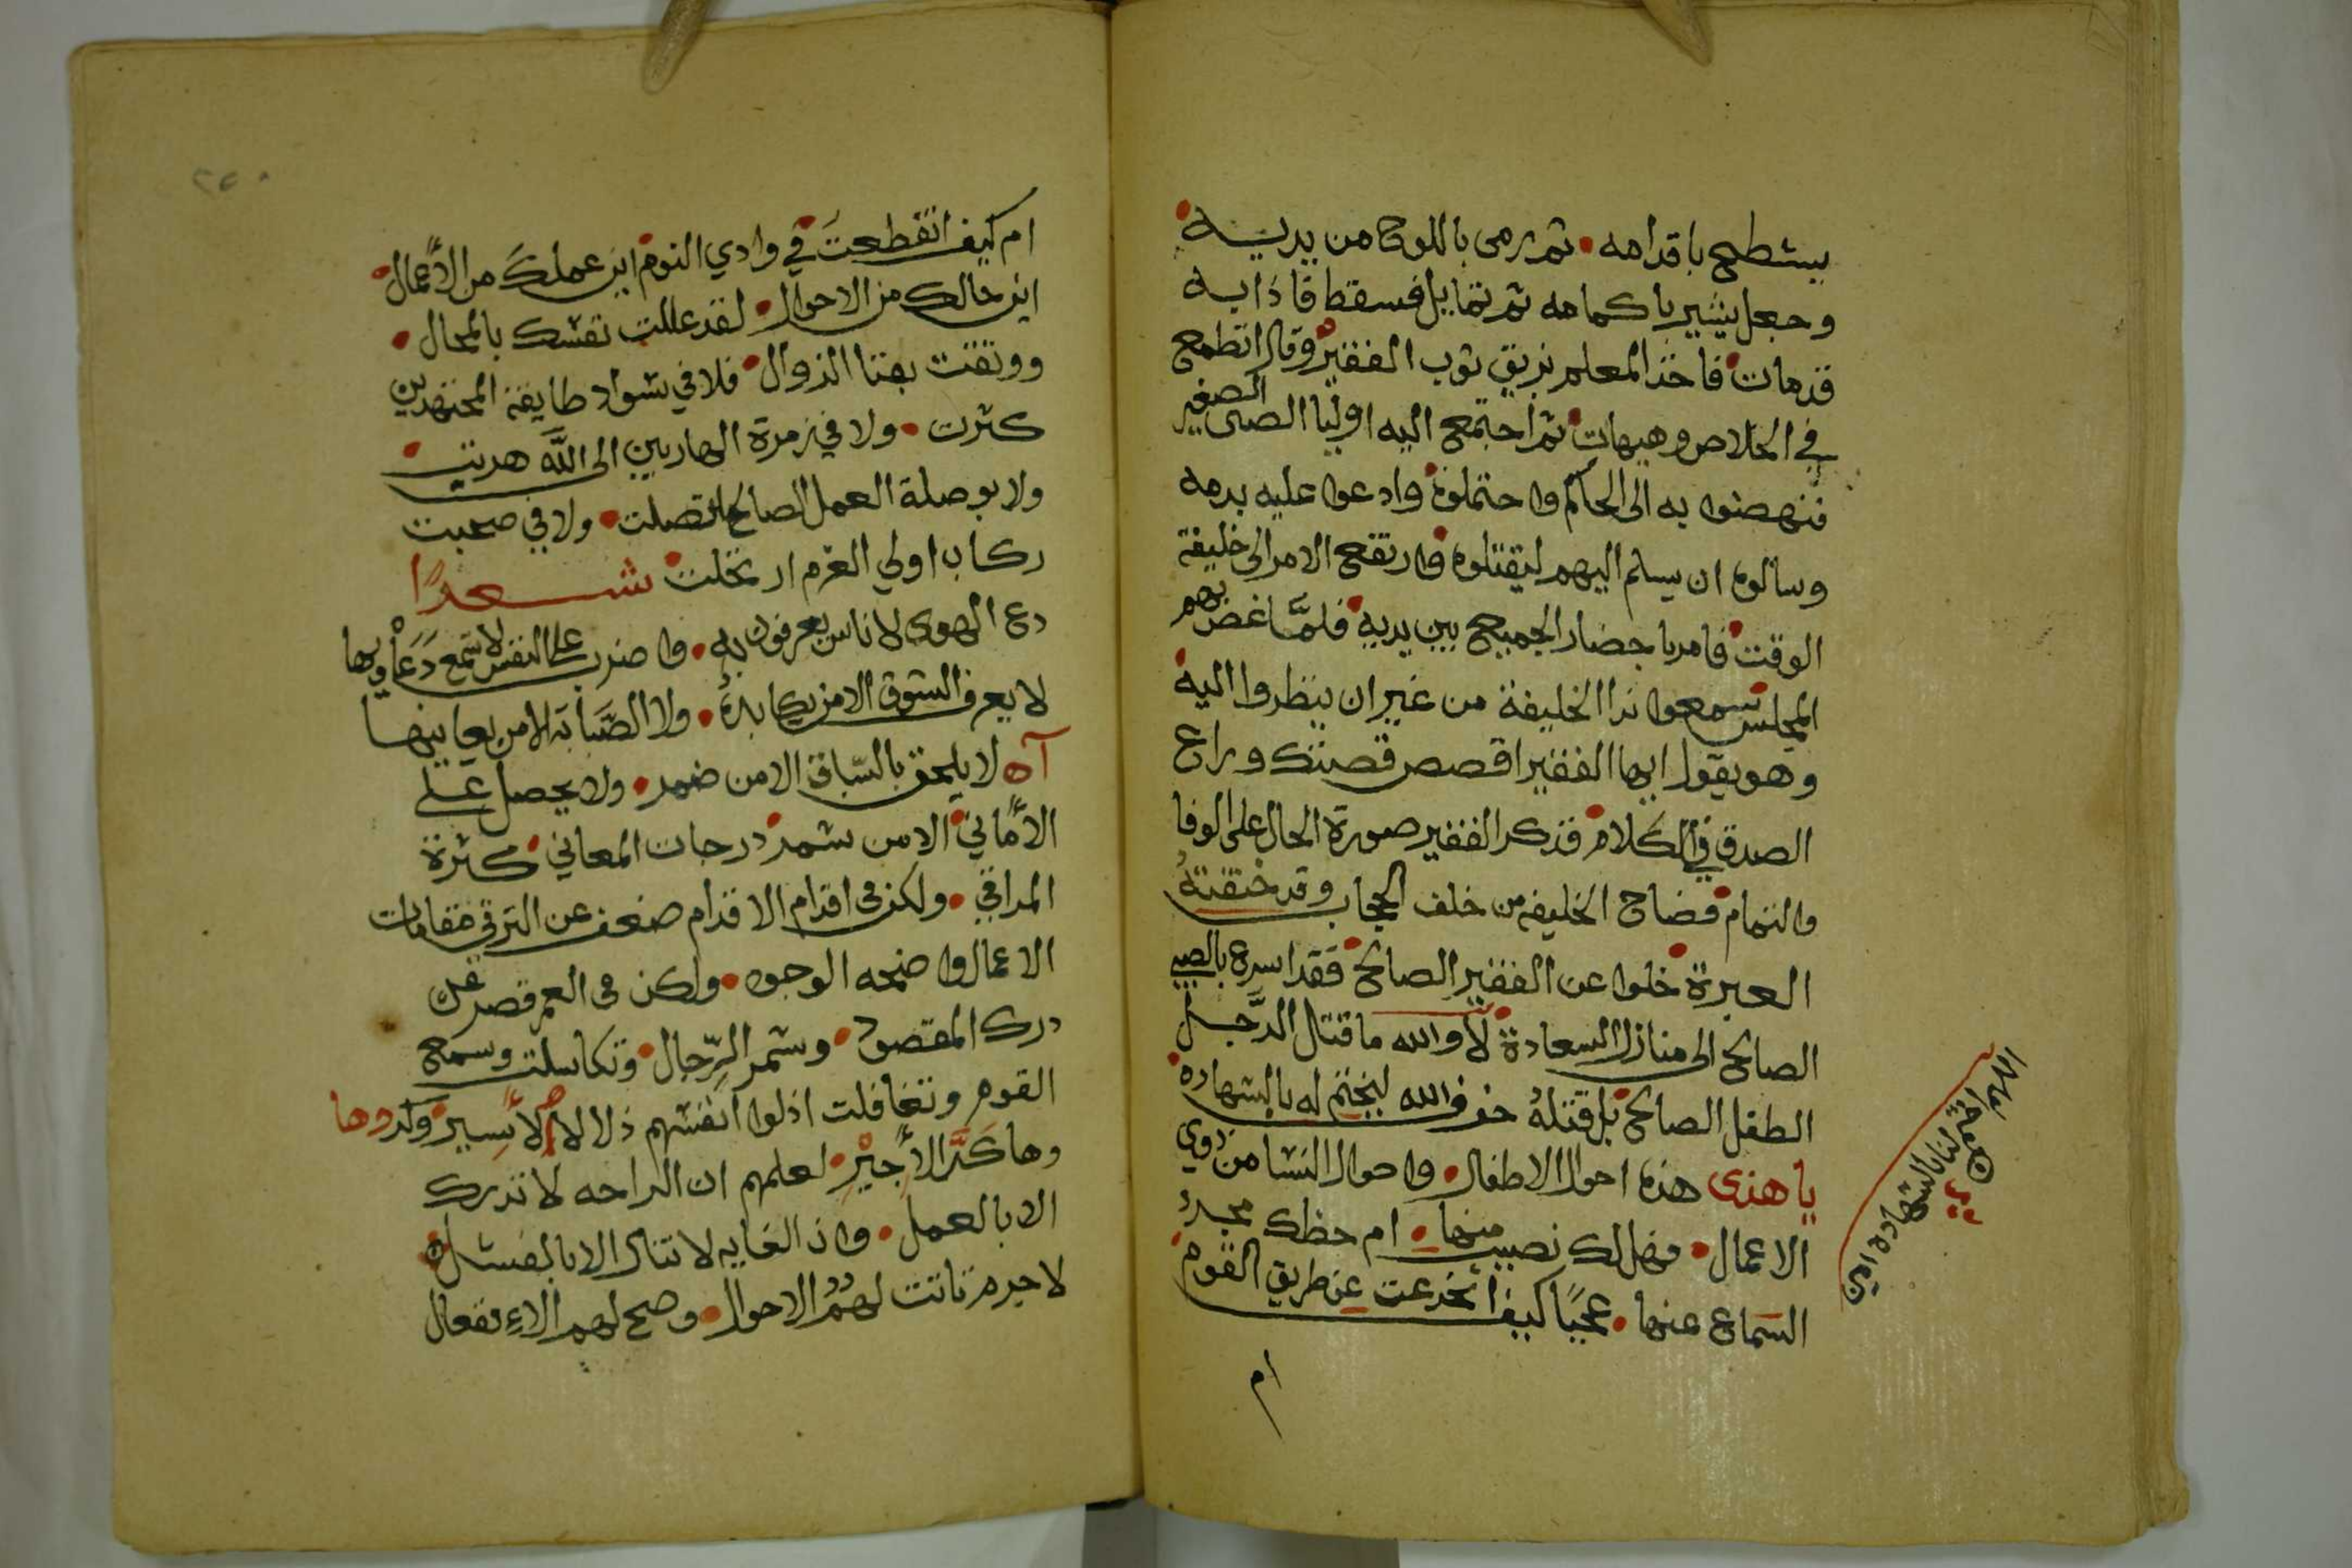 يشطح باقدامه • ثم رمى باللوح من يديه
وجعل يشير باكمامه ثم تمايل فسقط فاذا به
قد مات • فاخذ المعلم بزيق ثوب الفقير وقال اتطمع
في الخلاص وهيهات • ثم اجتمع اليه اوليا الصبي الصغير
فنهضوا به الى الحاكم واحتملوه • وادعوا عليه بدمه
وسالوه ان يسلم اليهم ليقتلوه • فارتفع الامر الى خليفة
الوقت • فامر باحضار الجميع بين يديه • فلمَّا غض بهم
المجلس سمعوا ندا الخليفة من غير ان ينظروا اليه •
وهو يقول ايها الفقير اقصص قصتك وراع
الصدق في الكلام • فذكر الفقير صورة الحال على الوفا
والتمام • فصاح الخليفه من خلف الحجاب وقد خنقته
العبرة • خلوا عن الفقير الصالح • فقد اسرع بالصبي
الصالح الى منازل السعادة • لا والله ما قتل الرَّجل
الطفل الصالح • بل قتله خوف الله ليختم له بالشهاده •
يا هذى هذه احوال الاطفال • واحوال النسا من ذوي
الاعمال • فهل لك نصيب منها • ام حظك مجرد
السماع عنها • عجبًا كيف انخدعت عن طريق القوم •
ام
اللهم اختم لنا بالشهادة امين
ام كيف انقطعتَ في وادي النوم • اين عملكَ من الأعمال •
اين حالك من الاحوال • لقد عللت نفسك بالمحال •
ووثقت بفنا الزوال • فلا في سواد طايفة المجتهدين
كثرت • ولا في زمرة الهاربين الى اللَّه هربت •
ولا بوصلة العمل الصالح اتصلت • ولا في صحبت
ركاب اولي العزم ارتحلت • شعرًا
دع الهوى لاناس يعرفون به • واضرب على النفس لا تسمع دَعَاويها
لا يعرف الشوق الا من يكابدهُ • ولا الصَّبابَة الا من يعانيها
آه لا يلحق بالسّباق الا من ضمر • ولا يحصل على
الأماني الا من شمر • درجات المعاني • كثرة
المراقي • ولكن فى اقدام الاقدام ضعف عن الترقي مقامات
الاعمال واضحه الوجوه • ولكن فى العمر قصر عن
درك المقصود • وشمر الرّجال • وتكاسلت وسمع
القوم وتغافلت اذلوا انفسهم ذلا لا الأسير • وكدوها
وها كَدَّ الأجيْر • لعلمهم ان الراحه لا تدرك
الا بالعمل • وان الغايه لا تنال الا بالفشل
لا جرم تاتت لهُم الاحوال • وصح لهم الاءنفعال